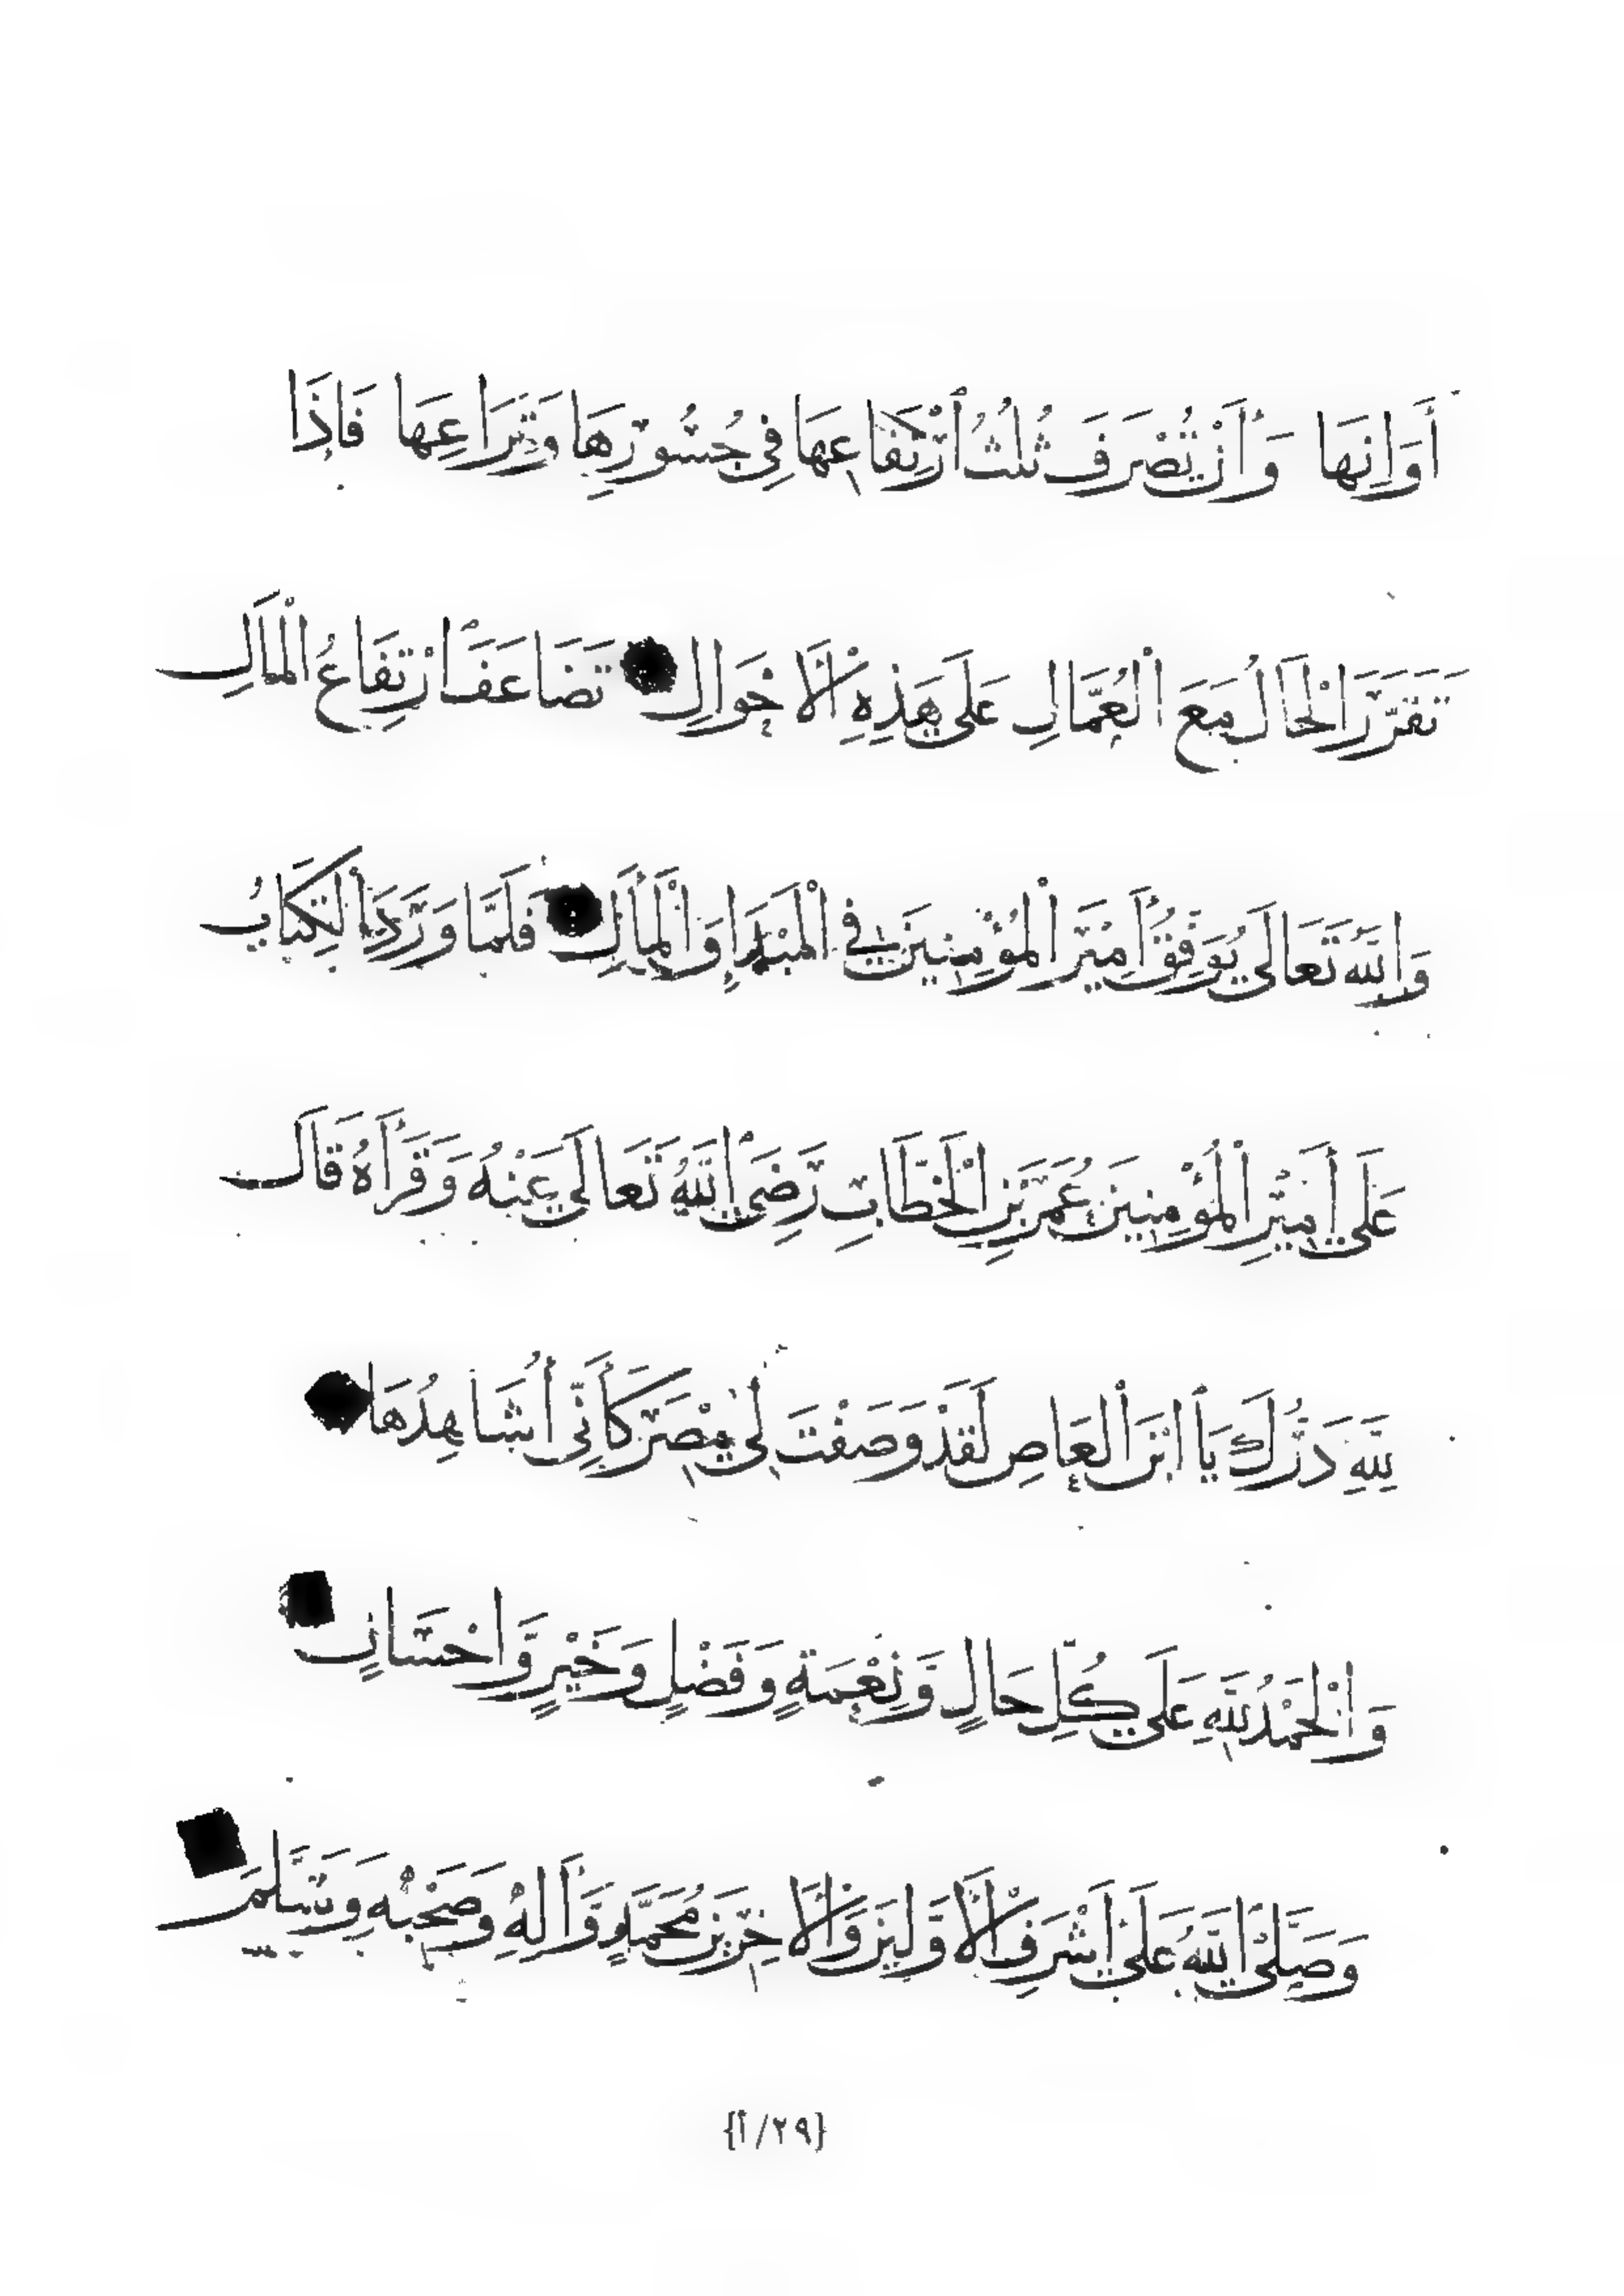 أَوَانِهَا وَأَنْ تُصْرَفَ ثُلُثُ ارْتِفَاعِهَا فِي جُسُورِهَا وَتِرَاعِهَا فَإِذَا
تَقَرَّرَ الْحَالُ مَعَ الْعُمَّالِ عَلَى هَذِهِ الْأَحْوَالِ تَضَاعَفَ ارْتِفَاعُ الْمَالِ
وَاللَّهُ تَعَالَى يُوَفِّقُ أَمِيرَ الْمُؤْمِنِينَ فِي الْمَبْدَإِ وَالْمَآلِ فَلَمَّا وَرَدَ الْكِتَابُ
عَلَى أَمِيرِ الْمُؤْمِنِينَ عُمَرَ بْنِ الْخَطَّابِ رَضِيَ اللَّهُ تَعَالَى عَنْهُ وَقَرَأَهُ قَالَ
لِلَّهِ دَرُّكَ يَا ابْنَ الْعَاصِ لَقَدْ وَصَفْتَ لِي مِصْرَ كَأَنِّي أُشَاهِدُهَا
وَالْحَمْدُ لِلَّهِ عَلَى كُلِّ حَالٍ وَنِعْمَةٍ وَفَضْلٍ وَخَيْرٍ وَإِحْسَانٍ
وَصَلَّى اللَّهُ عَلَى أَشْرَفِ الْأَوَّلِينَ وَالْآخِرِينَ مُحَمَّدٍ وَآلِهِ وَصَحْبِهِ وَسَلَّمَ
{٢٩/أ}